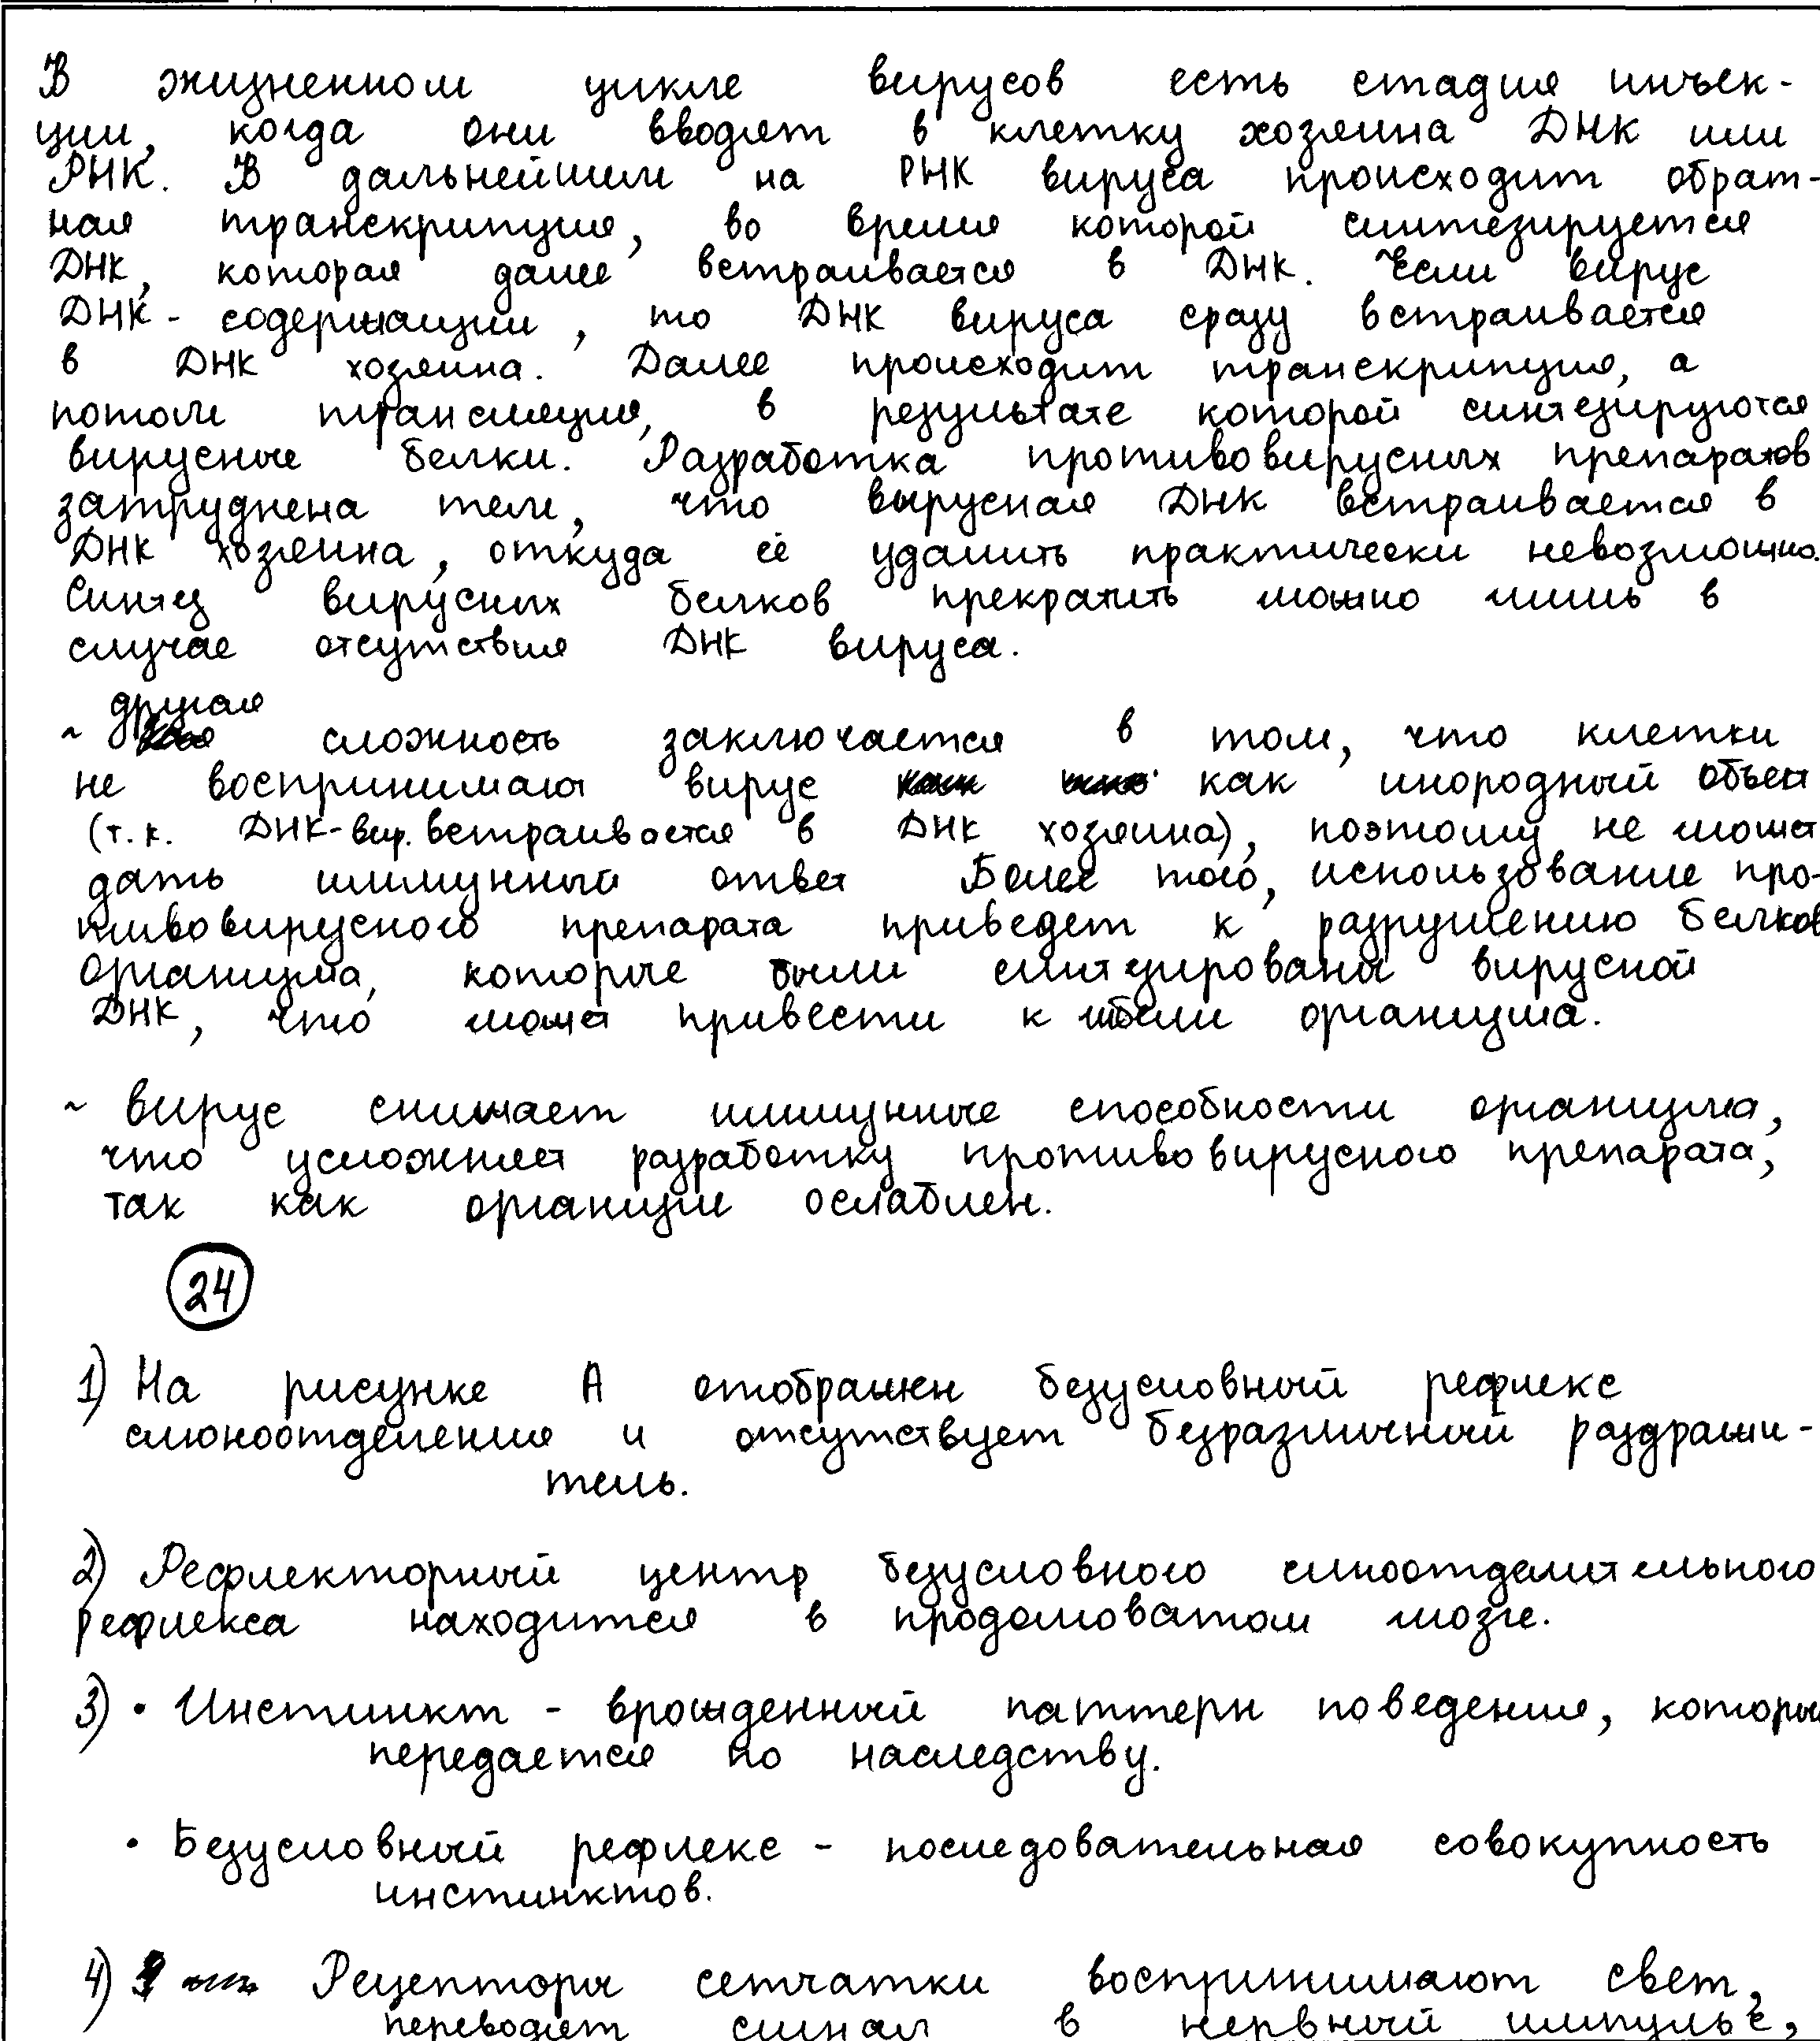 В жизненном цикле вирусов есть стадия инъек-
ции, когда они вводят в клетку хозяина ДНК или
РНК. В дальнейшем на РНК вируса происходит обрат-
ная транскрипция, во время которой синтезируется
ДНК, которая далее встраивается в ДНК. Если вирус
ДНК-содержащий, то ДНК вируса сразу встраивается
в ДНК хозяина. Далее происходит транскрипция, а
потом трансляция, в результате которой синтезируются
вирусные белки. Разработка противовирусных препаратов
затруднена тем, что вирусная ДНК встраивается в
ДНК хозяина, откуда её удалить практически невозможно.
Синтез вирусных белков прекратить можно лишь в
случае отсутствия ДНК вируса.
другая
~ сложность заключается в том, что клетки
не воспринимают вирус как инородный объект
(т.к. ДНК-вир. встраивается в ДНК хозяина), поэтому не может
дать иммунный ответ Более того, использование про-
тивовирусного препарата приведет к разрушению белков
организма, которые были синтезированы вирусной
ДНК, что может привести к гибели организма.
~ вирус снижает иммунные способности организма,
что усложняет разработку противовирусного препарата,
так как организм ослаблен.
24
1) На рисунке А отображен безусловный рефлекс
слюноотделения и отсутствует безразличный раздражи-
тель.
2) Рефлекторный центр безусловного слюоотделительного
рефлекса находится в продолговатом мозге.
3) • Инстинкт - врожденный паттерн поведения, который
передается по наследству.
• Безусловный рефлекс - последовательная совокупность
инстинктов.
4) Рецепторы сетчатки воспринимают свет,
переводят сигнал в нервный импульс,